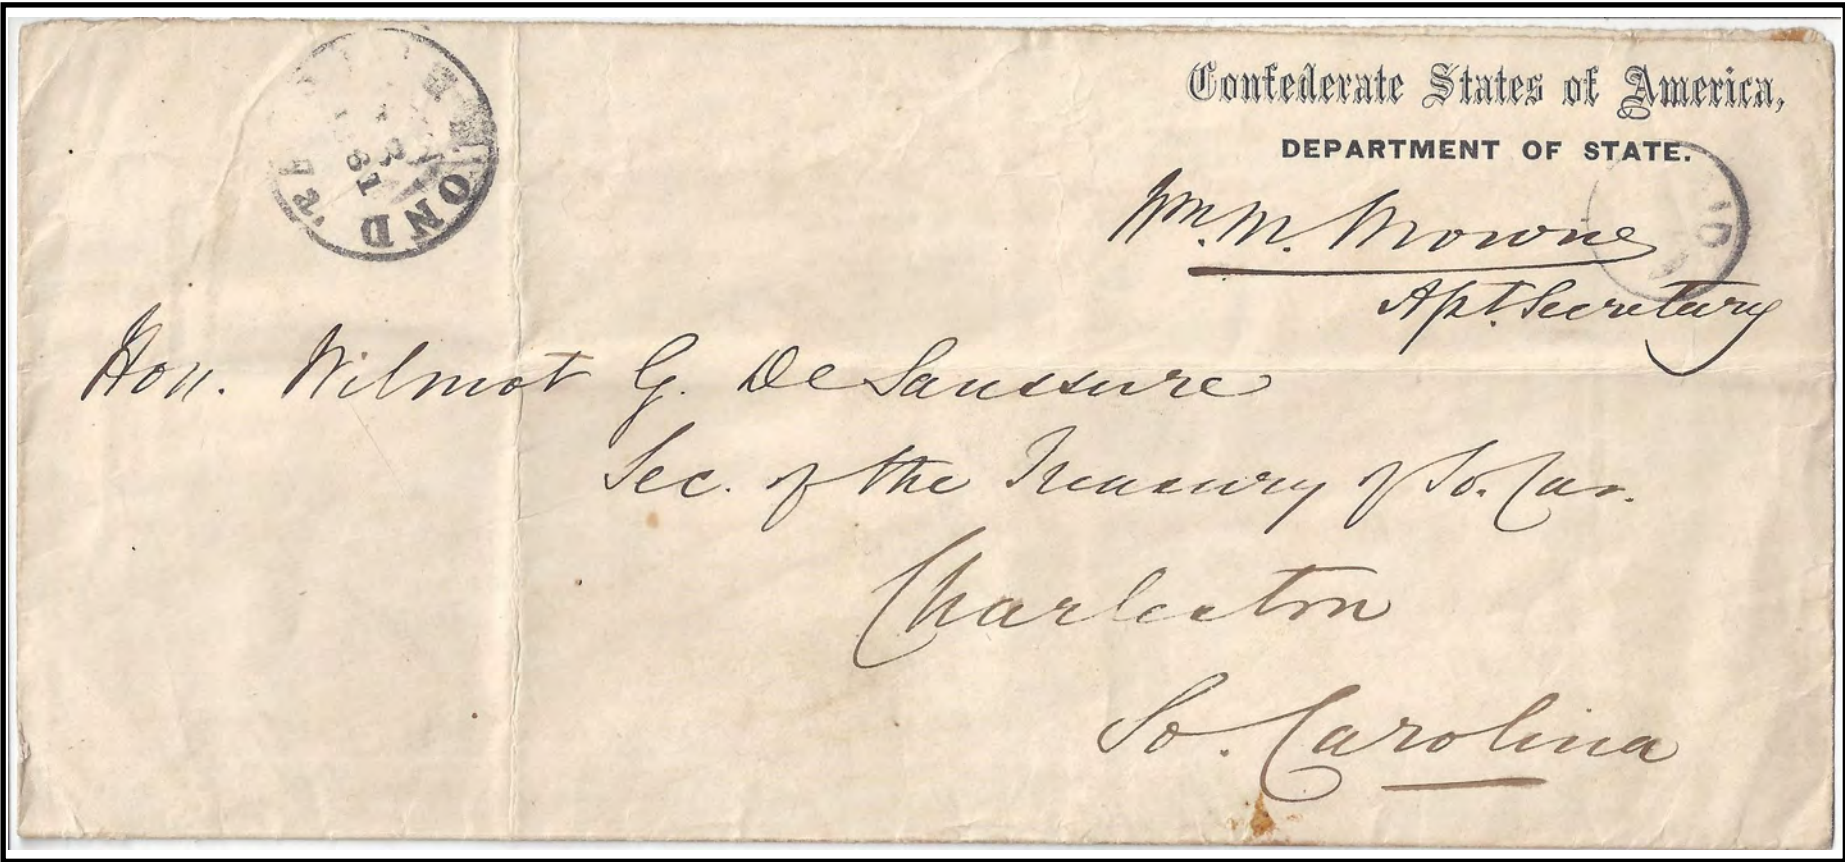 Confederate States of America,
DEPARTMENT OF STATE.
Wm. M. Browne
Asst. Secretary
Hon. Wilmot G. De Saussure
Sec. of the Treasury of So. Car.
Charleston
So. Carolina
OND Va.
1861